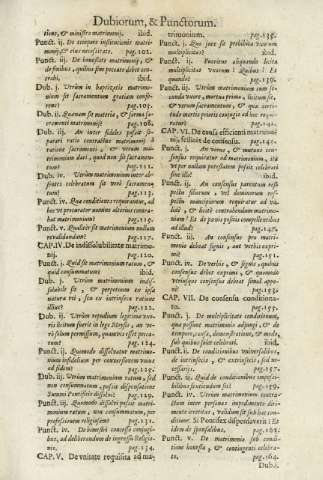 Dubiorum, & Punctorum.
tione, & ministro matrimonij. ibid.
Punct. ij. De tempore institutionis matri-
monij, & eius necessitate. pag. 102.
Punct. iij. De honestate matrimonij, &
de finibus, quibus sine peccato debet con-
trahi, ibid.
Dub. j. Utrum in baptizatis matrimo-
nium sit sacramentum gratiam confe-
rens? pag. 105.
Dub. ij. Quænam sit materia, & forma sa-
cramenti matrimonij? pag. 108.
Dub. iij. An inter fideles possit se-
parari ratio contractus matrimonij à
ratione Sacramenti, & verum matri-
monium dari, quod non sit Sacramen-
tum? pag. 111.
Dub. iv. Utrum matrimonium inter ab-
sentes celebratum sit verè sacramen-
tum? pag. 113.
Punct. iv. Quæ conditiones requirantur, ad
hoc vt procurator nomine alterius contra-
hat matrimonium? pag. 116.
Punct. v. Qualiter matrimonium nullum
revalidandum? pag. 117.
CAP. IV. De indissolubilitate matrimo-
nij. pag. 120.
Punct. j. Quid sit matrimonium ratum, &
quid consummatum? ibid.
Dub. j. Utrum matrimonium indis-
solubile sit, & perpetuum ex ipsa
natura rei, seu ex intrinseca ratione
illius? pag. 122.
Dub. ij. Utrum repudium legitimæ vxo-
ris licitum fuerit in lege Moysis, an ve-
rò solum permissum, quantum esset peccatum?
pag. 124.
Punct. ij. Quomodo dissolvatur matrimo-
nium infidelium per conversionem vnius
ad fidem? pag. 125.
Dub. iij. Utrum matrimonium ratum, sed
non consummatum, possit dispensatione
Summi Pontificis dissolvi? pag. 129.
Punct. iij. Quomodo dissolvi possit matri-
monium ratum, non consummatum, per
professionem religiosam? pag. 131.
Punct. iv. De bimestri concesso coniugi-
bus, ad deliberandum de ingressu Religio-
nis. pag. 134.
CAP. V. De vnitate requisita ad ma-
trimonium. pag. 135.
Punct. j. Quo jure sit prohibita vxorum
multiplicitas? ibid.
Punct. ij. Fuerit ne aliquando licita
multiplicitas vxorum? Quibus? Et
quando? pag. 139.
Punct. iij. Utrum matrimonium cum se-
cunda vxore, mortua prima, licitum sit,
& verum sacramentum, & qua certi-
tudo mortis prioris coniugis ad hoc requi-
ratur? pag. 141.
CAP. VI. De causa efficienti matrimo-
nij scilicet de consensu. pag. 141.
Punct. j. An verus, & mutuus con-
sensus requiratur ad matrimonium, ita
vt per nullam potestatem suppleri possit?
ibid.
Punct. ij. An consensus parentum res-
pectu filiorum, vel dominorum res-
pectu mancipiorum requiratur ad va-
lidè, & licitè contrahendum matrimo-
nium? Et de pœnis ipsius comprehendens
ad illud? pag. 147.
Punct. iij. An consensus pro matri-
monio debeat signis, aut verbis expri-
mi? pag. 151.
Punct. iv. De verbis, & signis quibus
consensus debet exprimi, & quomodo
vtriusque consensus debeat simul appo-
ni? pag. 153.
CAP. VII. De consensu conditiona-
to. pag. 155.
Punct. j. De multiplicitate conditionum,
quæ possunt matrimonio adjungi: & de
tempore, causa, demonstratione, & modo,
sub quibus solet celebrari. ibid.
Punct. ij. De conditionibus vniversalibus,
& de intrinsecis, & extrinsecis, seu ne-
cessarijs. pag. 157.
Punct. iij. Quid de conditionibus impossi-
bilibus sentiendum sit? pag. 159.
Punct. iv. Utrum matrimonium contra-
ctum inter personas invalidante diri-
mente irretitas, validum sit sub hac con-
ditione: Si Pontifex dispensaverit: Et
idem de sponsalibus. pag. 162.
Punct. v. De matrimonio sub condi-
tione honesta, & contingenti celebra-
to. pag. 164.
Dub. j.